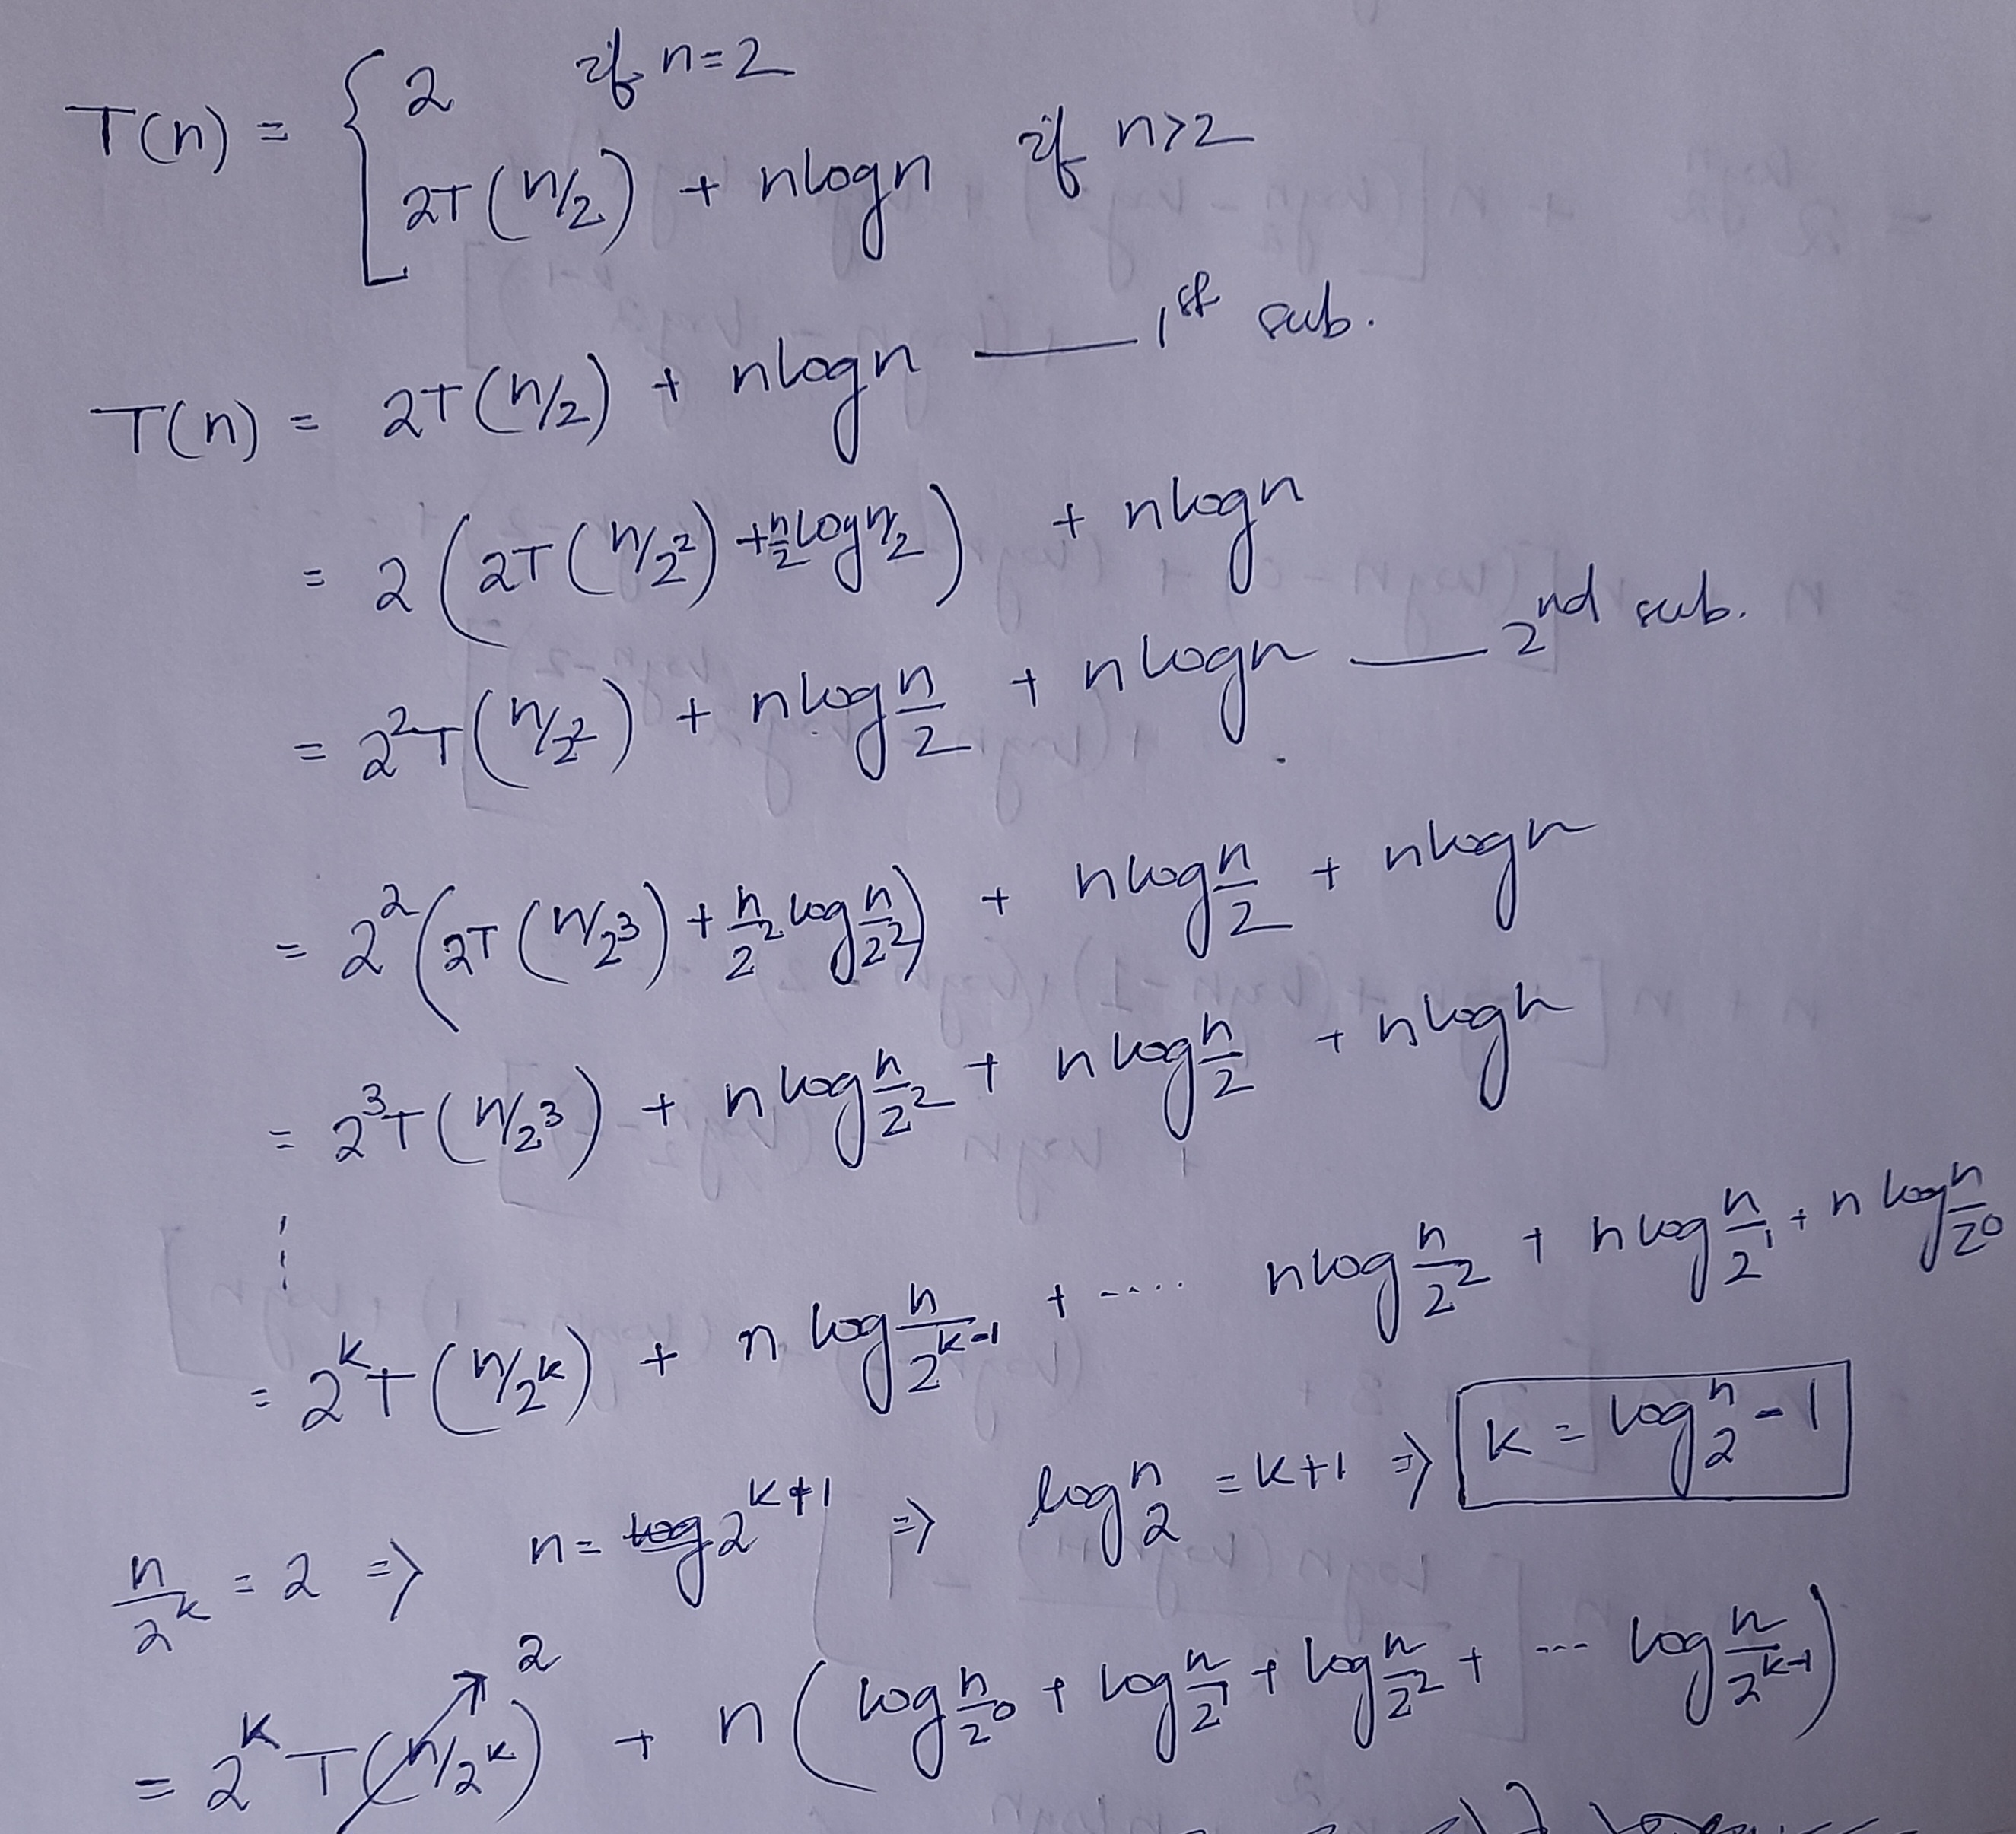 T(n) = { 2 if n=2
2T(n/2) + nlogn if n>2
T(n) = 2T(n/2) + nlogn — 1st sub.
= 2(2T(n/2²) + n/2 log n/2) + nlogn
= 2²T(n/2²) + nlog n/2 + nlogn — 2nd sub.
= 2²(2T(n/2³) + n/2² log n/2²) + nlog n/2 + nlogn
= 2³T(n/2³) + nlog n/2² + nlog n/2 + nlogn
⋮
= 2^k T(n/2^k) + n log n/2^(k-1) + .... nlog n/2² + nlog n/2¹ + nlog n/2⁰
n/2^k = 2 => n = 2^(k+1) => log₂n = k+1 => k = log₂n - 1
= 2^k T(n/2^k) 2 + n(log n/2⁰ + log n/2¹ + log n/2² + ... log n/2^(k-1))